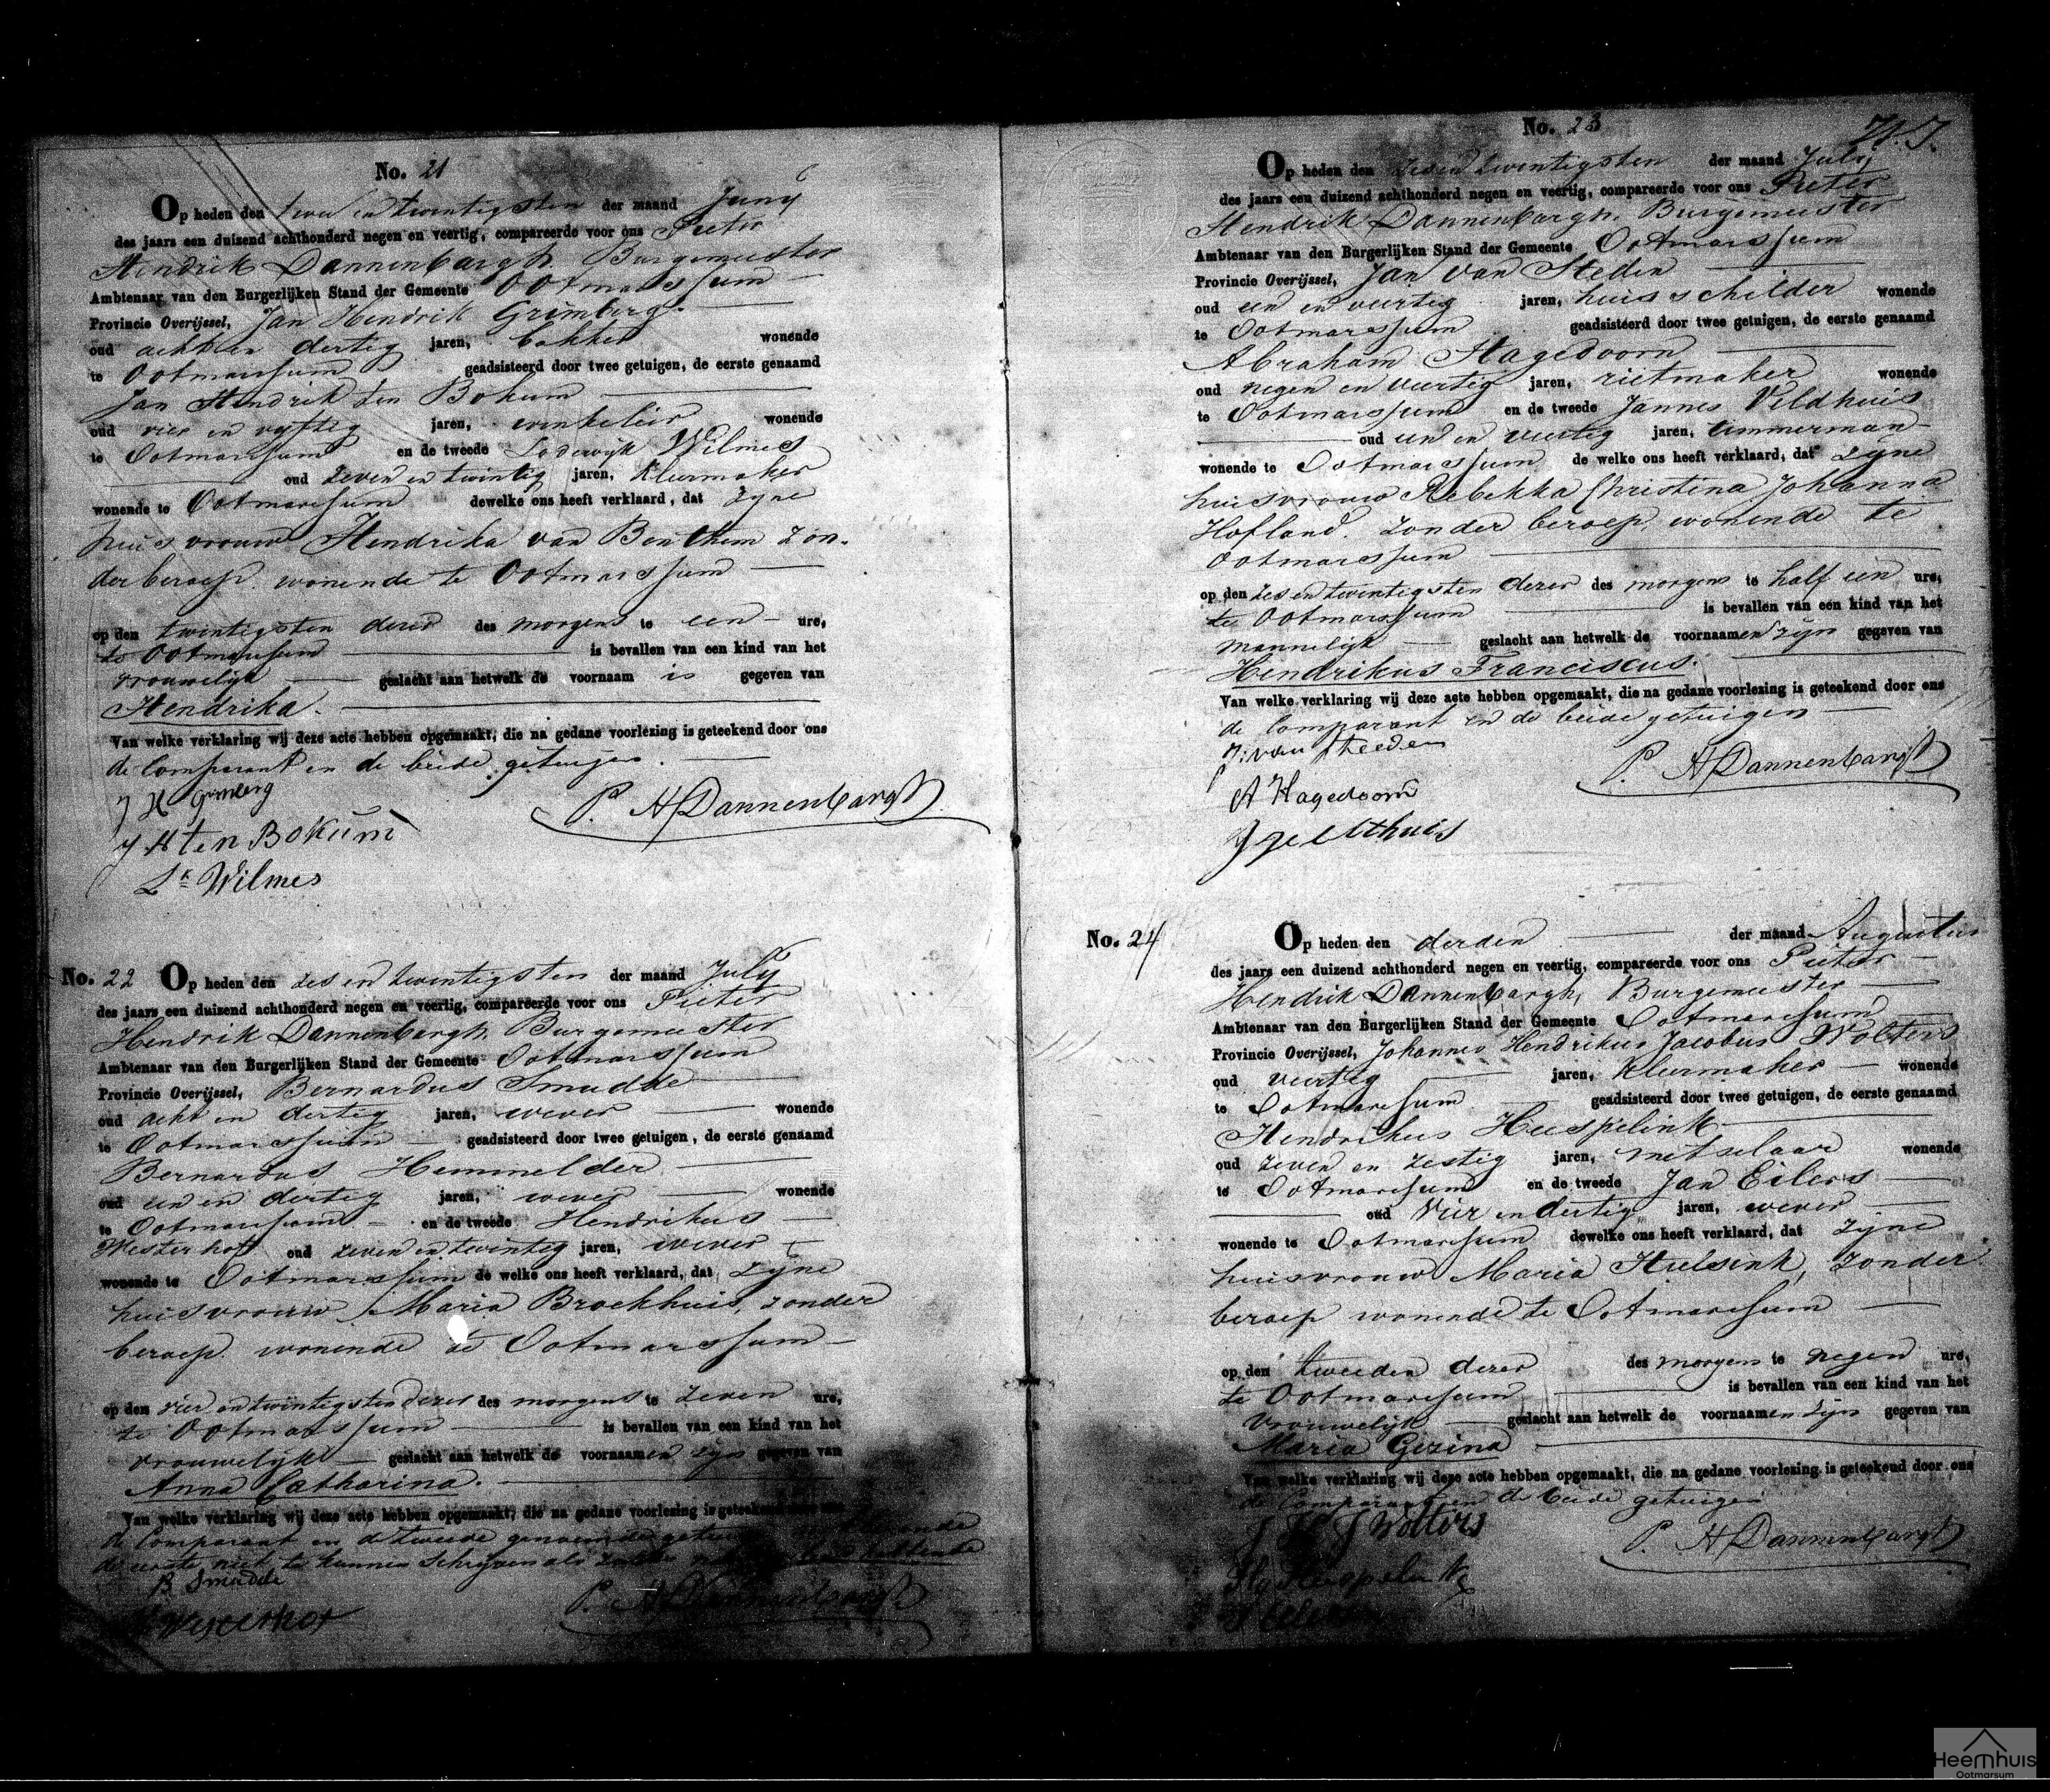 No. 21
Op heden den twee en twintigsten der maand Juny
des jaars een duizend achthonderd negen en veertig, compareerde voor ons Pieter
Hendrik Dannenbargh, Burgemeester
Ambtenaar van den Burgerlijken Stand der Gemeente Ootmarssum
Provincie Overijssel, Jan Hendrik Grimberg.
oud acht en dertig jaren, bakker wonende
te Ootmarssum geadsisteerd door twee getuigen, de eerste genaamd
Jan Hendrik ten Bokum
oud vier en vyftig jaren, winkelier wonende
te Ootmarssum en de tweede Lodewyk Wilmes
oud zeven en twintig jaren, kleermaker
wonende te Ootmarssum dewelke ons heeft verklaard, dat zyne
huisvrouw Hendrika van Benthem zon-
der beroep wonende te Ootmarssum
op den twintigsten dezer des morgens te een ure,
te Ootmarssum is bevallen van een kind van het
vrouwelijk geslacht aan hetwelk de voornaam is gegeven van
Hendrika.
Van welke verklaring wij deze acte hebben opgemaakt, die na gedane voorlezing is geteekend door ons
de Comparant en de beide getuigen.
J H Grimberg
P. H Dannenbargh
J H ten Bokum
Lk Wilmes
No. 22 Op heden den zes en twintigsten der maand July
des jaars een duizend achthonderd negen en veertig, compareerde voor ons Pieter
Hendrik Dannenbargh, Burgemeester
Ambtenaar van den Burgerlijken Stand der Gemeente Ootmarssum
Provincie Overijssel, Bernardus Smudde
oud acht en dertig jaren, wever wonende
te Ootmarssum geadsisteerd door twee getuigen, de eerste genaamd
Bernardus Hemmelder
oud een en dertig jaren, wever wonende
te Ootmarssum en de tweede Hendrikus
Westerhof oud zeven en twintig jaren, wever
wonende te Ootmarssum de welke ons heeft verklaard, dat zyne
huisvrouw Maria Broekhuis, zonder
beroep wonende te Ootmarssum
op den vier en twintigsten dezer des morgens te zeven ure,
te Ootmarssum is bevallen van een kind van het
vrouwelijk geslacht aan hetwelk de voornaamen zijn gegeven van
Anna Catharina.
Van welke verklaring wij deze acte hebben opgemaakt, die na gedane voorlezing is geteekend
de Comparant en de tweede genoemde getuige
de eerste niet te kunnen schryven als
B Smudde
P. H Dannenbargh
Westerhof
No. 23
Op heden den zeven twintigsten der maand July
des jaars een duizend achthonderd negen en veertig, compareerde voor ons Pieter
Hendrik Dannenbargh, Burgemeester
Ambtenaar van den Burgerlijken Stand der Gemeente Ootmarssum
Provincie Overijssel, Jan van Steden
oud een en veertig jaren, huisschilder wonende
te Ootmarssum geadsisteerd door twee getuigen, de eerste genaamd
Abraham Hagedoorn
oud negen en veertig jaren, rietmaker wonende
te Ootmarssum en de tweede Jannes Veldhuis
oud een en veertig jaren, timmerman
wonende te Ootmarssum de welke ons heeft verklaard, dat zijne
huisvrouw Rebekka Christina Johanna
Hofland. zonder beroep, wonende te
Ootmarssum
op den zes en twintigsten dezer des morgens te half een ure,
te Ootmarssum is bevallen van een kind van het
mannelijk geslacht aan hetwelk de voornaamen zijn gegeven van
Hendrikus Franciscus.
Van welke verklaring wij deze acte hebben opgemaakt, die na gedane voorlezing is geteekend door ons
de Comparant en de beide getuigen
J: van Steeden
P. H Dannenbargh
A Hagedoorn
J Velthuis
No. 24 Op heden den derden der maand Augustus
des jaars een duizend achthonderd negen en veertig, compareerde voor ons Pieter
Hendrik Dannenbargh, Burgemeester
Ambtenaar van den Burgerlijken Stand der Gemeente Ootmarssum
Provincie Overijssel, Johannes Hendrikus Jacobus Wolters
oud veertig jaren, kleermaker wonende
te Ootmarssum geadsisteerd door twee getuigen, de eerste genaamd
Hendrikus Huspelink
oud zeven en zestig jaren, metselaar wonende
te Ootmarssum en de tweede Jan Eilers
oud vier en dertig jaren, wever
wonende te Ootmarssum dewelke ons heeft verklaard, dat zijne
huisvrouw Maria Hulsink, zonder
beroep wonende te Ootmarssum
op den tweeden dezer des morgens te negen ure,
te Ootmarssum is bevallen van een kind van het
vrouwelijk geslacht aan hetwelk de voornaamen zijn gegeven van
Maria Gezina
Van welke verklaring wij deze acte hebben opgemaakt, die na gedane voorlezing is geteekend door ons
de Comparant en de beide getuigen
J H J Wolters
P. H Dannenbargh
Heemhuis
Ootmarsum